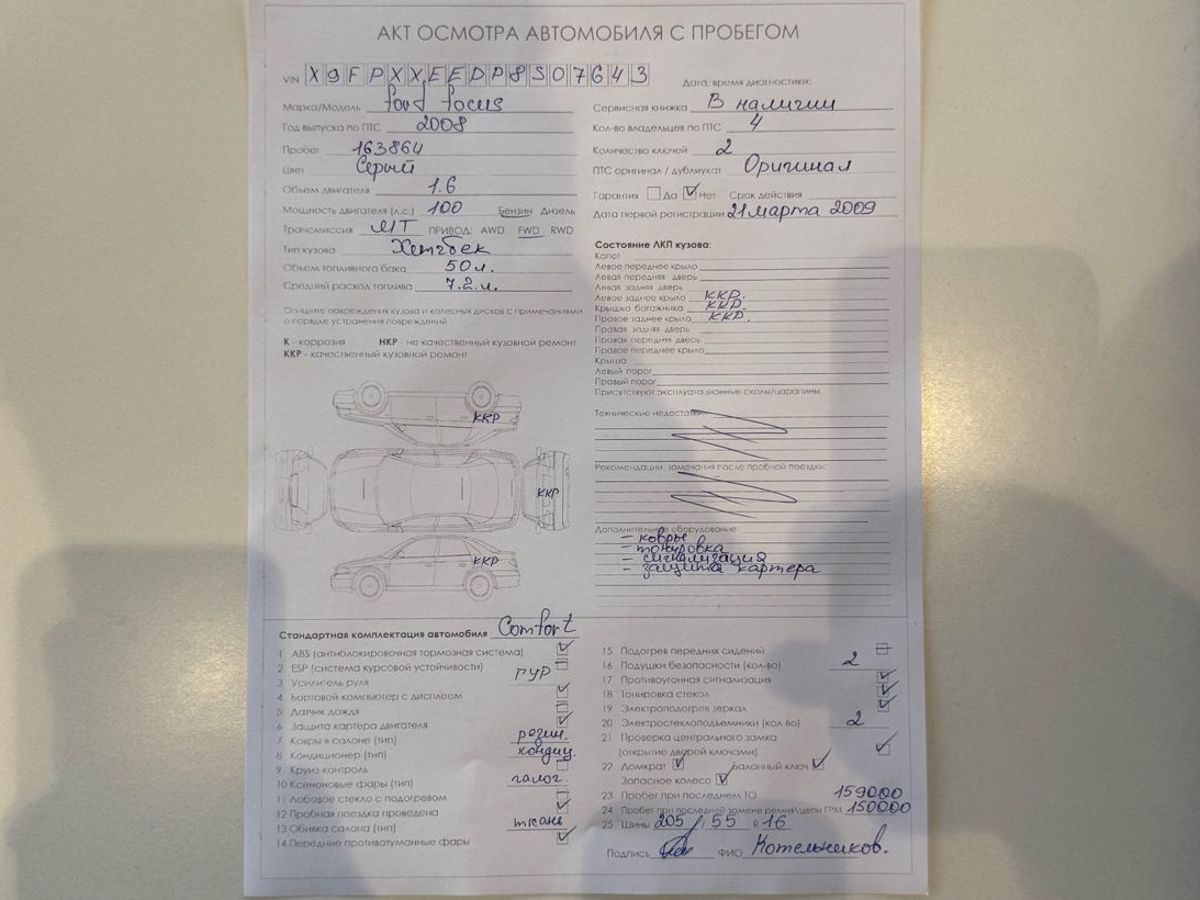 АКТ ОСМОТРА АВТОМОБИЛЯ С ПРОБЕГОМ
VIN X9FPXXEEDP8S07643
Дата, время диагностики:
Марка/Модель Ford Focus
Год выпуска по ПТС 2008
Пробег 163864
Цвет Серый
Объем двигателя 1.6
Мощность двигателя (л.с.) 100 Бензин Дизель
Трансмиссия МТ ПРИВОД: AWD FWD RWD
Тип кузова Хетчбек
Объем топливного бака 50 л.
Средний расход топлива 7.2 л.
Опишите повреждения кузова и колесных дисков с примечаниями
о порядке устранения повреждений
К - коррозия НКР - не качественный кузовной ремонт
ККР - качественный кузовной ремонт
ККР
ККР
ККР
Сервисная книжка В наличии
Кол-во владельцев по ПТС 4
Количество ключей 2
ПТС оригинал / дубликат Оригинал
Гарантия Да Нет Срок действия
Дата первой регистрации 21 марта 2009
Состояние ЛКП кузова:
Капот
Левое переднее крыло
Левая передняя дверь
Левая задняя дверь
Левое заднее крыло ККР.
Крышка багажника ККР.
Правое заднее крыло ККР.
Правая задняя дверь
Правая передняя дверь
Правое переднее крыло
Крыша
Левый порог
Правый порог
Присутствуют эксплуатационные сколы/царапины.
Технические недостатки:
Рекомендации, замечания после пробной поездки:
Дополнительное оборудование:
- ковры
- тонировка
- сигнализация
- защита картера
Стандартная комплектация автомобиля Comfort
1 ABS (антиблокировочная тормозная система)
2 ESP (система курсовой устойчивости)
3 Усилитель руля ГУР
4 Бортовой компьютер с дисплеем
5 Датчик дождя
6 Защита картера двигателя
7 Ковры в салоне (тип) резин.
8 Кондиционер (тип) кондиц.
9 Круиз контроль
10 Ксеноновые фары (тип) галог.
11 Лобовое стекло с подогревом
12 Пробная поездка проведена
13 Обивка салона (тип) ткань
14 Передние противотуманные фары
15 Подогрев передних сидений
16 Подушки безопасности (кол-во) 2
17 Противоугонная сигнализация
18 Тонировка стекол
19 Электроподогрев зеркал
20 Электростеклоподъемники (кол во) 2
21 Проверка центрального замка
(открытие дверей ключами)
22 Домкрат Балонный ключ
Запасное колесо
23 Пробег при последнем ТО 159000
24 Пробег при последней замене ремня\цепи ГРМ 150000
25 Шины 205 / 55 R 16
Подпись ФИО Котельников.